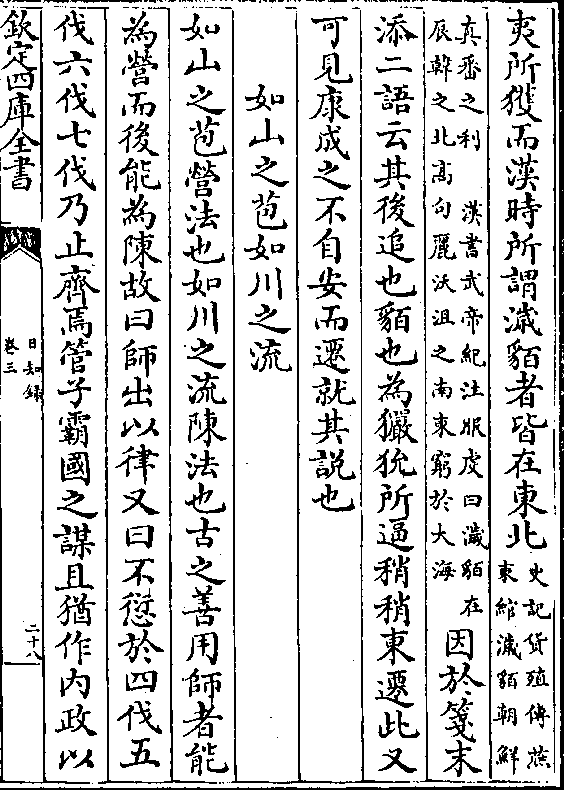 夷所獲而漢時所謂濊貊者皆在東北史記貨殖傳燕東綰濊貊朝鮮
真番之利 漢書武帝紀注服虔曰濊貊在辰韓之北高句麗沃沮之南東窮於大海因於箋末
添二語云其後追也貊也為玁狁所逼稍稍東遷此又
可見康成之不自安而遷就其説也
如山之苞如川之流
如山之苞營法也如川之流陳法也古之善用師者能
為營而後能為陳故曰師出以律又曰不愆於四伐五
伐六伐七伐乃止齊焉管子霸國之謀且猶作内政以
欽定四庫全書
日知錄
卷三
二十八